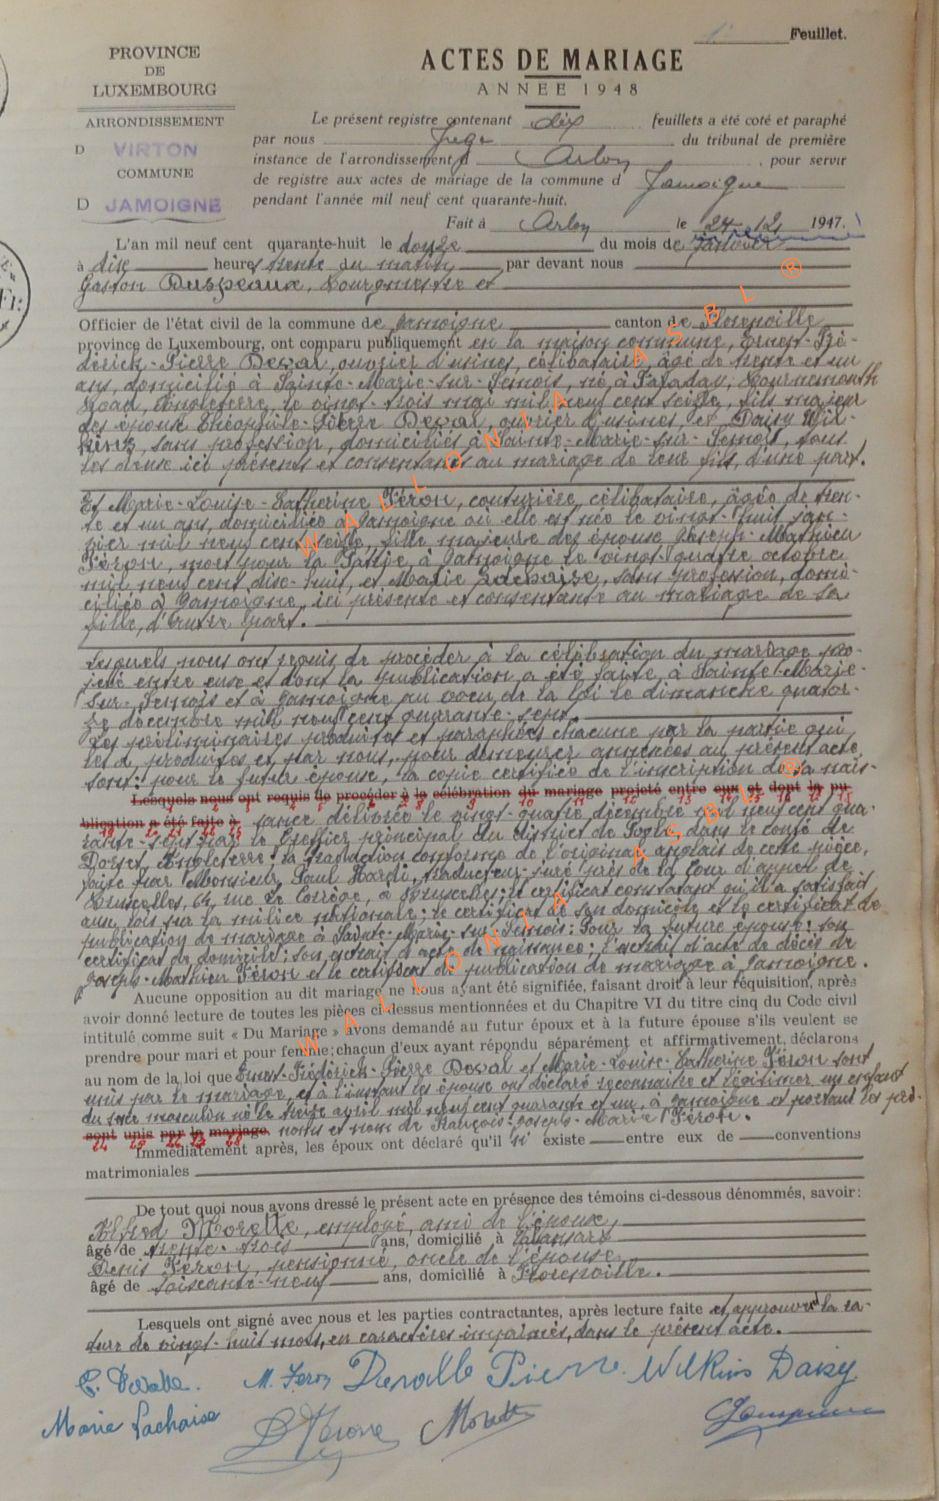 Feuillet.
PROVINCE
DE
LUXEMBOURG
ARRONDISSEMENT
D VIRTON
COMMUNE
D JAMOIGNE
ACTES DE MARIAGE
ANNEE 1948
Le présent registre contenant dix feuillets a été coté et paraphé
par nous Juge du tribunal de première
instance de l'arrondissement d Arlon, pour servir
de registre aux actes de mariage de la commune d Jamoigne
pendant l'année mil neuf cent quarante-huit.
Fait à Arlon le 24-12 1947.
L'an mil neuf cent quarante-huit le douze du mois de janvier
à dix heures trente du matin par devant nous
Gaston Duspeaux, Bourgmestre et
Officier de l'état civil de la commune de Jamoigne canton de Florenville
province de Luxembourg, ont comparu publiquement en la maison commune, Ernest-Fré-
dérick-Pierre Deval, ouvrier d'usines, célibataire, âgé de trente et un
ans, domicilié à Sainte-Marie-sur-Semois, né à Bournemouth
Road, Angleterre, le vingt-trois mai mil neuf cent seize, fils majeur
des époux Théophile-Pierre Deval, ouvrier d'usines, et Daisy Wil-
kins, sans profession, domiciliés à Sainte-Marie-sur-Semois, tous
les deux ici présents et consentants au mariage de leur fils, d'une part.
Et Marie-Louise-Catherine Féron, couturière, célibataire, âgée de tren-
te et un ans, domiciliée à Jamoigne où elle est née le vingt-huit jan-
vier mil neuf cent seize, fille majeure des époux Joseph-Mathieu
Féron, mort pour la Patrie, à Jamoigne le vingt-quatre octobre
mil neuf cent dix-huit, et Marie Lachaise, sans profession, domi-
ciliée à Jamoigne, ici présente et consentante au mariage de sa
fille, d'autre part.
Lesquels nous ont requis de procéder à la célébration du mariage pro-
jeté entre eux et dont la publication a été faite à Sainte-Marie-
sur-Semois et à Jamoigne au voeu de la loi le dimanche quator-
ze décembre mil neuf cent quarante-sept.
Les préliminaires produites et paraphées chacune par la partie qui
les a produites et par nous, pour demeurer annexées au présent acte,
sont: pour le futur époux, la copie certifiée de l'inscription de sa nais-
Lesquels nous ont requis de procéder à la célébration du mariage projeté entre eux et dont la pu-
blication a été faite à sance délivrée le vingt-quatre décembre mil neuf cent qua-
rante-sept par le Greffier principal du district de Poole, dans le comté de
Dorset, Angleterre; la traduction conforme de l'original anglais de cette pièce,
faite par Monsieur Paul Hardi, traducteur-juré près de la Cour d'appel de
Bruxelles, 64, rue de Corrège, à Bruxelles; le certificat constatant qu'il a satisfait
aux lois sur la milice nationale; le certificat de son domicile et le certificat de
publication de mariage à Sainte-Marie-sur-Semois: Pour la future épouse: son
certificat de domicile; son extrait d'acte de naissance; l'extrait d'acte de décès de
Joseph-Mathieu Féron et le certificat de publication de mariage à Jamoigne.
Aucune opposition au dit mariage ne nous ayant été signifiée, faisant droit à leur réquisition, après
avoir donné lecture de toutes les pièces ci-dessus mentionnées et du Chapitre VI du titre cinq du Code civil
intitulé comme suit « Du Mariage » avons demandé au futur époux et à la future épouse s'ils veulent se
prendre pour mari et pour femme; chacun d'eux ayant répondu séparément et affirmativement, déclarons
au nom de la loi que Ernest-Frédérick-Pierre Deval et Marie-Louise-Catherine Féron sont
unis par le mariage, et à l'instant les époux ont déclaré reconnaître et légitimer un enfant
du sexe masculin né le treize avril mil neuf cent quarante et un, à Jamoigne et portant les pré-
sont unis par le mariage. noms et nom de François-Joseph-Marie Féron.
Immédiatement après, les époux ont déclaré qu'il n'existe entre eux de conventions
matrimoniales
De tout quoi nous avons dressé le présent acte en présence des témoins ci-dessous dénommés, savoir:
Alfred Morette, employé, ami de l'époux,
âgé de trente-trois ans, domicilié à
Denis Féron, pensionné, oncle de l'épouse,
âgé de soixante-neuf ans, domicilié à Florenville.
Lesquels ont signé avec nous et les parties contractantes, après lecture faite et approuvé la ra-
ture de vingt-huit mots, en caractères imprimés, dans le présent acte.
M. Feron Pierre Wilkins Daisy
Marie Lachaise
WALLONIA ASBL ®
WALLONIA ASBL ®